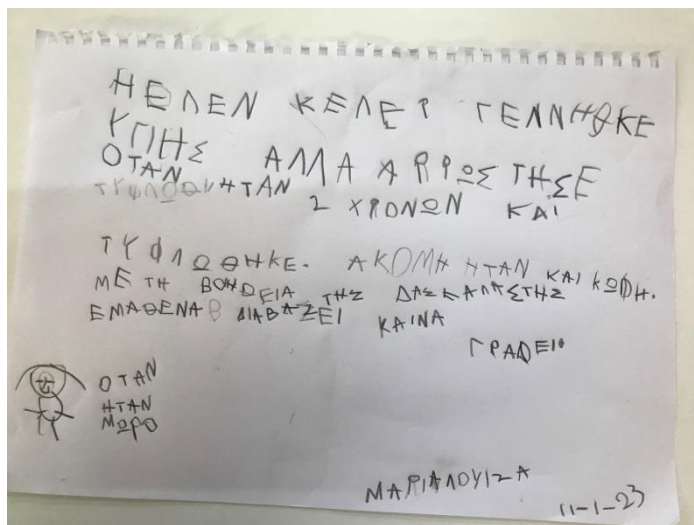 Η ΕΛΕΝ ΚΕΛΕΡ ΓΕΛΝΗΘΚΕ
ΥΓΙΗΣ ΑΛΛΑ ΑΡΡΩΣΤΗΣΕ
ΟΤΑΝ
ΗΤΑΝ 2 ΧΡΟΝΩΝ ΚΑΙ
ΤΥΦΛΩΘΗΚΕ. ΑΚΟΜΗ ΗΤΑΝ ΚΑΙ ΚΩΦΗ.
ΜΕ ΤΗ ΒΟΗΘΕΙΑ ΤΗΣ ΔΑΣΚΑΛΑΣΤΗΣ
ΕΜΑΘΕΝΑ ΔΙΑΒΑΖΕΙ ΚΑΙΝΑ
ΓΡΑΦΕΙ.
ΟΤΑΝ
ΗΤΑΝ
ΜΩΡΟ
ΜΑΡΙΑΛΟΥΙΖΑ
11-1-23